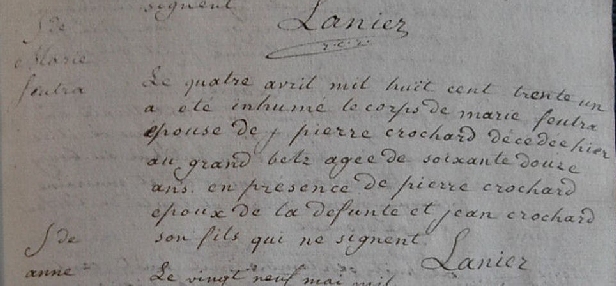 signent
Lanier
S de
Marie
feutra
Le quatre avril mil huit cent trente un
a été inhumé le corps de marie feutra
epouse de pierre crochard décedée hier
au grand betz agée de soixante douze
ans. en présence de pierre crochard
epoux de la defunte et jean crochard
son fils qui ne signent
Lanier
S de
anne
Le vingt neuf mai mil